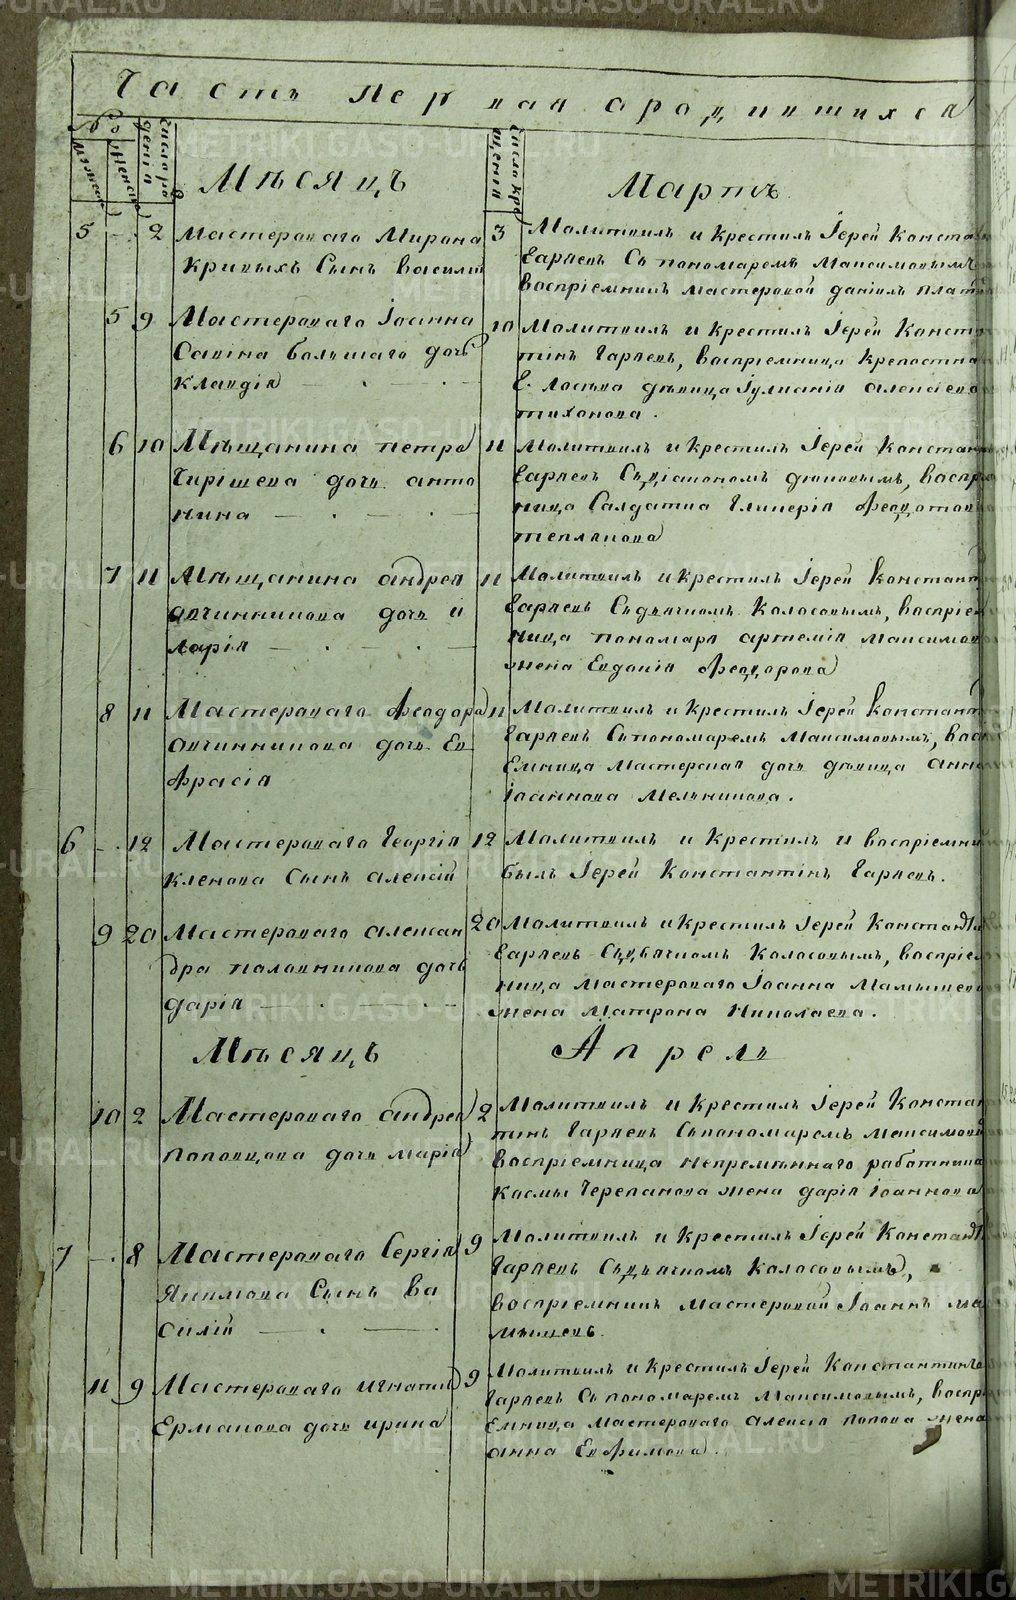 METRIKI.GASO-URAL.RU
Часть Первая ородившихся
№
Мужеск
Женск
Числа ро
денія
Числа кре
щенія
Мѣсяцъ Мартъ
5 2 Мастероваго Мирона
Кривыхъ Сынъ Василій
3 Молитвилъ и крестилъ Іерей Конста
Гаряевъ Съ пономаремъ Максимовымъ
воспріемникъ мастеровой даніилъ
5 9 Мастероваго Іоанна
Савина большаго дочь
Клавдія
10 Молитвилъ и крестилъ Іерей Конст
тинъ Гаряевъ, воспріемница крепостна
дѣвица Іуліанія алексѣева
тихонова.
6 10 Мѣщанина петра
дочь анто
нина
11 Молитвилъ и крестилъ Іерей Констан
Гаряевъ Съ діакономъ воспр
ница Салдатка Гликерія Феодотова
теплякова
7 11 Мѣщанина андрея
овчинникова дочь и
ларія
11 Молитвилъ и крестилъ Іерей Констант
Гаряевъ Съ дьячкомъ Колосовымъ, воспріем
ница пономаря артемія максимова
жена Евдокія Феодорова
8 11 Мастероваго Феодора
овчинникова дочь Ев
фрасія
11 Молитвилъ и крестилъ Іерей Констант
Гаряевъ Съ пономаремъ Максимовымъ, вос
Емница мастерская дочь дѣвица анна
Іоаннова Мельникова.
6 12 Мастероваго Георгія
Кленова Сынъ алексій
12 Молитвилъ и крестилъ и воспріемни
былъ Іерей Константинъ Гаряевъ.
9 20 Мастероваго алексан
дра половникова дочь
дарія
20 Молитвилъ и крестилъ Іерей Констант
Гаряевъ Съ дьячкомъ Колосовымъ, воспріем
ница Мастероваго Іоанна Мамышева
жена Матрона Николаева.
Мѣсяцъ Апрель
10 2 Мастероваго андрея
Поповцова дочь марія
2 Молитвилъ и крестилъ Іерей Констан
тинъ Гаряевъ Съ пономаремъ максимовы
воспріемница непремѣннаго работника
космы Черепанова жена дарія Іоаннова
7 8 Мастероваго Сергія
Якимова Сынъ Ва
силій
9 Молитвилъ и крестилъ Іерей Констант
Гаряевъ Съ дьячкомъ Колосовымъ,
воспріемникъ мастеровой Іоаннъ ма
мышевъ.
11 9 Мастероваго игнатія
Ермакова дочь ирина
9 Молитвилъ и крестилъ Іерей Константинъ
Гаряевъ Съ пономаремъ Максимовымъ, воспрі
Емница мастероваго алексія попова жена
анна Евфимова.
METRIKI.GASO-URAL.RU